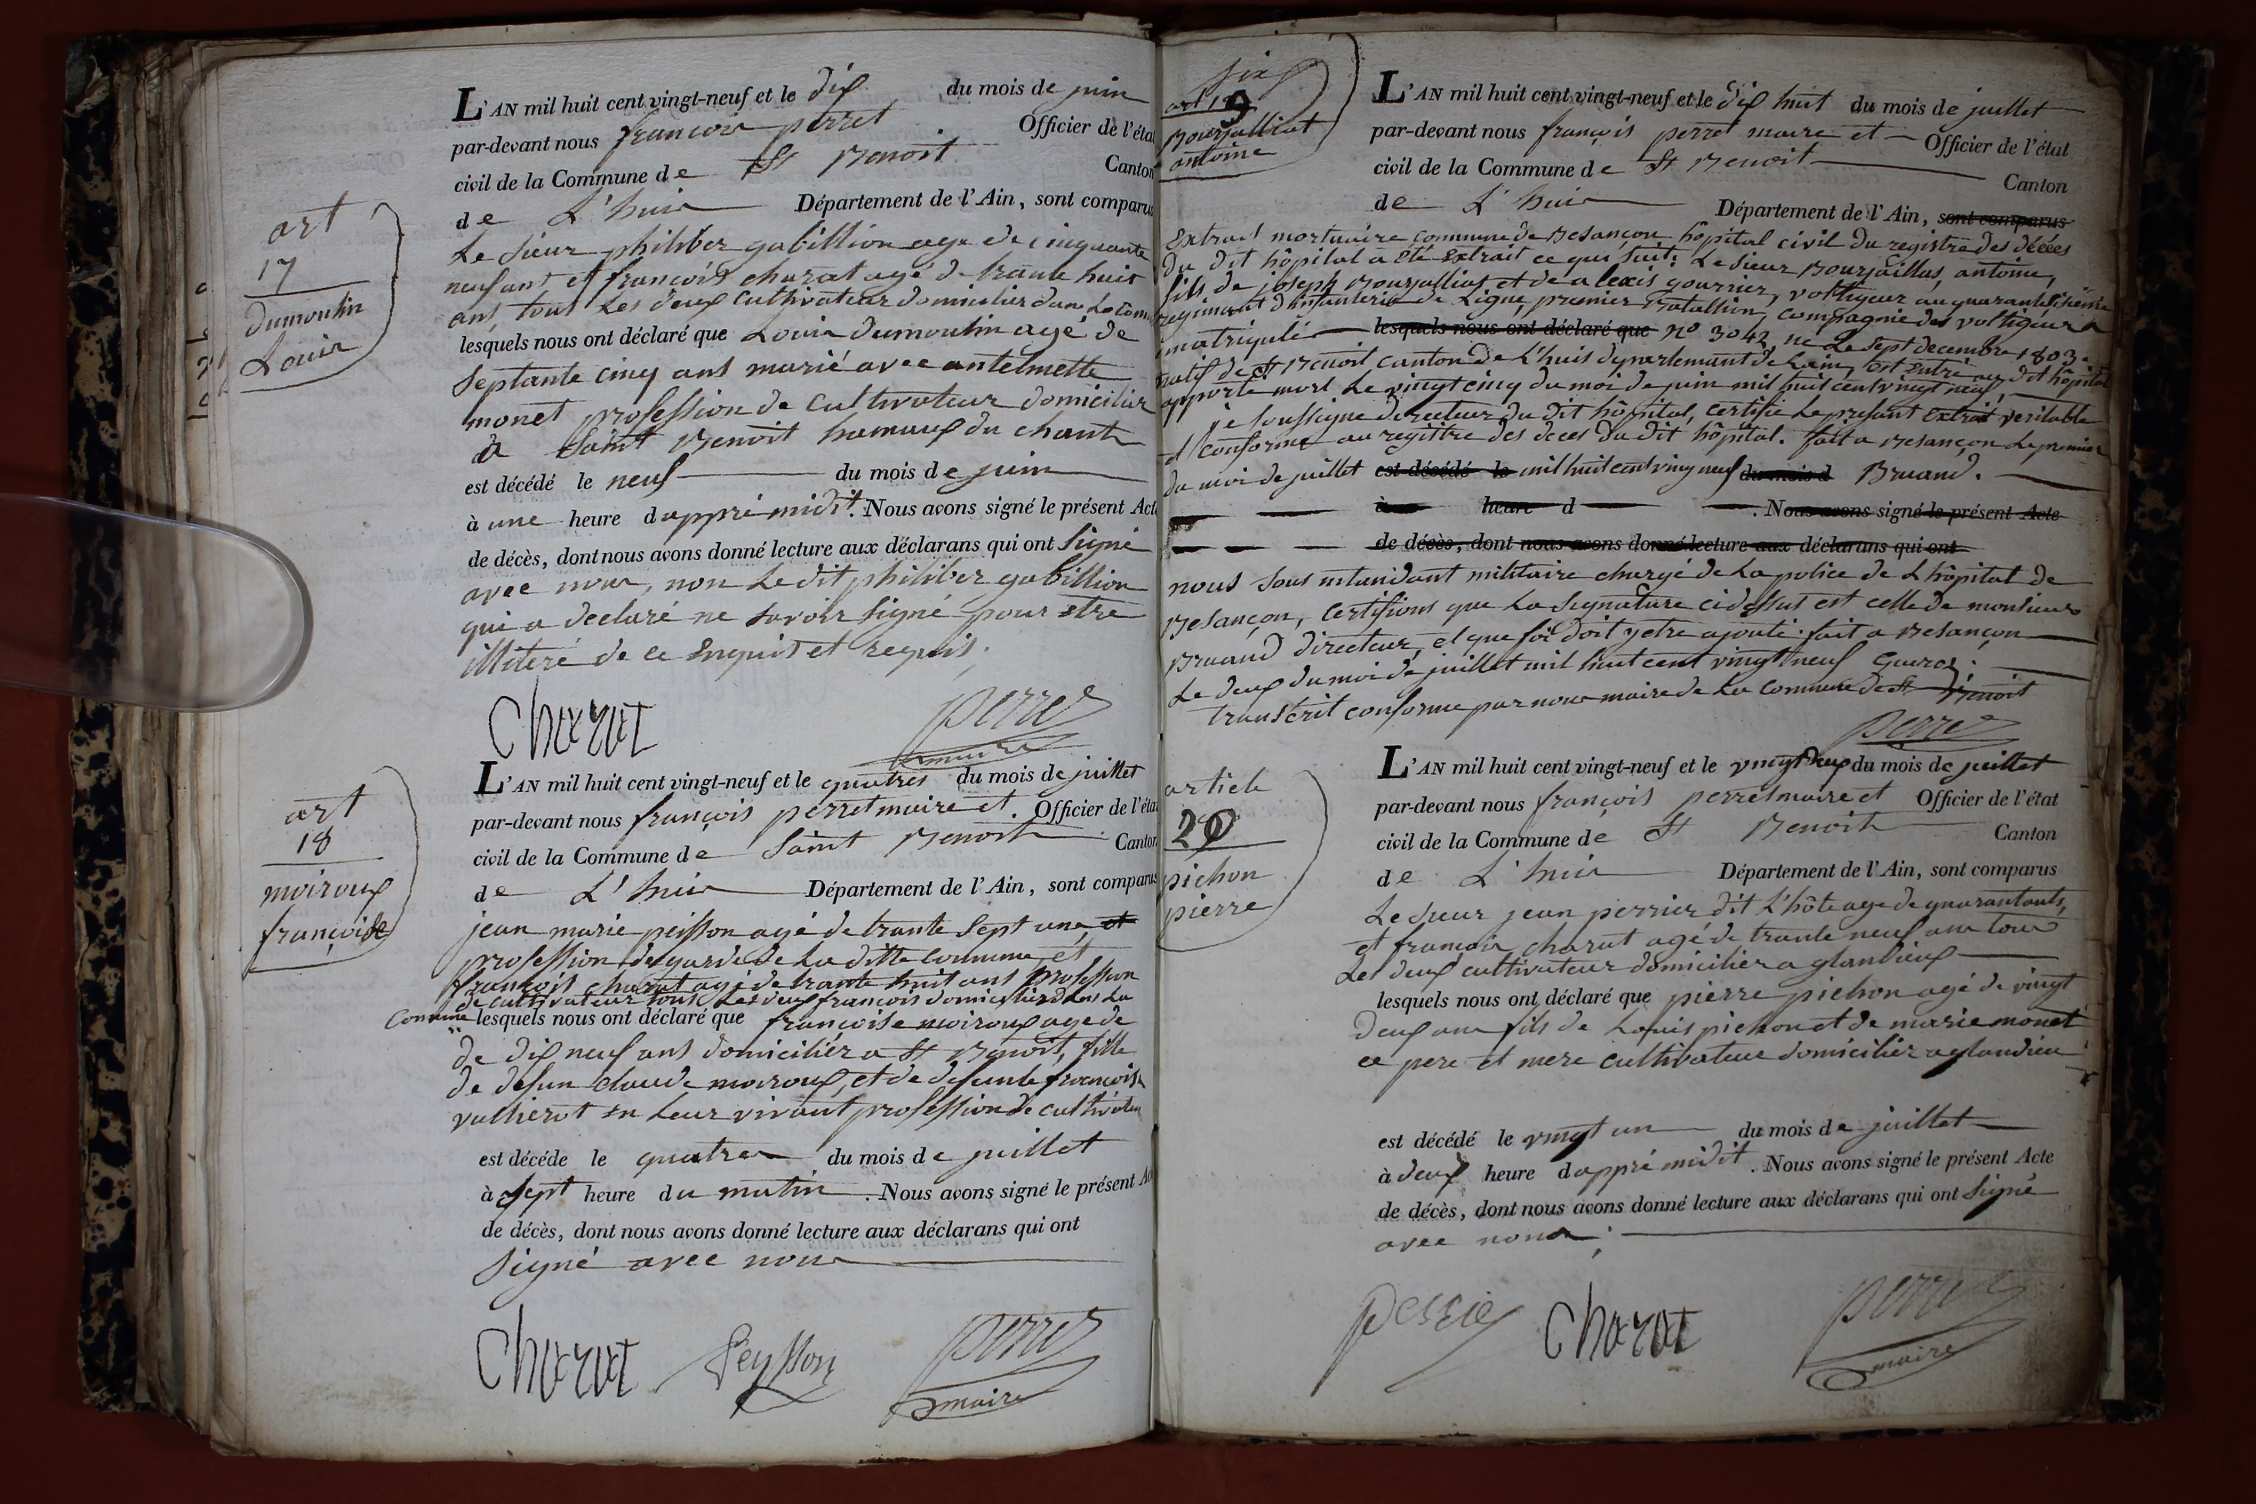 art
17
dumoulin
Louis
L'AN mil huit cent vingt-neuf et le dix du mois de juin
par-devant nous françois perret Officier de l'état
civil de la Commune de St Benoit Canton
de L'huis Département de l'Ain, sont comparus
Le sieur philiber gabillion age de cinquante
neuf ans, et françois charat agé de trante huit
ans, tous Les deux cultivateur domicilier dans La Comu
lesquels nous ont déclaré que Louis dumoulin agé de
septante cinq ans marié avec antelmette
monet profession de cultivateur domicilier
a Saint Benoit hamaux du chant
est décédé le neuf du mois de juin
à une heure dappré midit. Nous avons signé le présent Acte
de décès, dont nous avons donné lecture aux déclarans qui ont signé
avec nous, non Le dit philiber gabillion
qui a declaré ne savoir signé pour etre
illiteré de ce Enquis et requis.
Charat perret
maire
art
18
moiroux
françoise
L'AN mil huit cent vingt-neuf et le quatres du mois de juillet
par-devant nous françois perret maire et Officier de l'état
civil de la Commune de Saint Benoit Canton
de L'huis Département de l'Ain, sont comparus
jean marie peisson agé de trante sept ans, et
profession de garde de La ditte commune, et
françois charat agé de trante huit ans profession
de cultivateur tous Les deux françois domicilier dans La
Commune lesquels nous ont déclaré que françoise moiroux age de
de dix neuf ans domiciliér a St Benoit, fille
de defun claude moiroux, et de defunte françoise
vullierot en Leur vivant profession de cultivateur
est décéde le quatres du mois de juillet
à sept heure du matin. Nous avons signé le présent Acte
de décès, dont nous avons donné lecture aux déclarans qui ont
signé avec nous
Charat Peysson perret
maire
art 19
Bourjalliat
antoine
L'AN mil huit cent vingt-neuf et le dix huit du mois de juillet
par-devant nous françois perret maire et Officier de l'état
civil de la Commune de St Benoit Canton
de L'huis Département de l'Ain, sont comparus
Extrait mortuaire commune de Besançon hôpital civil du registre des décées
du dit hôpital a été Extrait ce qui suit: Le sieur Bourjaillat, antoine,
fils de joseph Bourjalliat et de alexis gourrier, voltigeur au quarante sixième
regiment d'infanterie de Ligne, premier Batallion, compagnie des voltigeurs
matriqulé lesquels nous ont déclaré que No 3042, ne Le sept decembre 1803.
natif de St Benoit canton de L'huis departemant de L'ain, est Entré au dit hôpital
apporté mort Le vingt cinq du moi de juin mil huit cent vingt neuf,
je soussigne directeur du dit hôpital, certifie Le present Extrait veritable
et conforme au registre des deces du dit hôpital. fait a Besançon Le premier
du moi de juillet est décédé le mil huit cent ving neuf du mois d Bruand.
à heure d. Nous avons signé le présent Acte
de décès, dont nous avons donné lecture aux déclarans qui ont
nous sous intandant militaire chargé de La police de L'hôpital de
Besançon, certifions que La signature ci dessus est celle de monsieur
Bruand directeur, et que foi doit y etre ajouté. fait a Besançon
Le deux du moi de juillet mil huit cent vingt neuf
transcrit conforme par nous maire de La commune de St Benoit
perret
article
20
pichon
pierre
L'AN mil huit cent vingt-neuf et le vingt deux du mois de juillet
par-devant nous françois perret maire et Officier de l'état
civil de la Commune de St Benoit Canton
de L'huis Département de l'Ain, sont comparus
Le sieur jean perrier dit L'hôte age de quarantants,
et françois charat agé de trante neuf ans tous
Les deux cultivateur domicilier a glandieux
lesquels nous ont déclaré que pierre pichon agé de vingt
deux ans fils de Louis pichon et de marie monet
ce pere et mere cultivateur domicilier a glandieu
est décédé le vingt un du mois de juillet
à deux heure dappré midit. Nous avons signé le présent Acte
de décès, dont nous avons donné lecture aux déclarans qui ont signé
avec nous.
Charat perret
maire